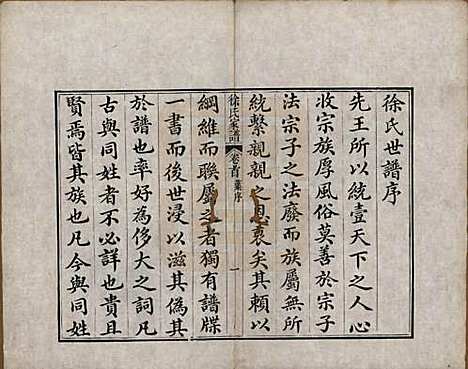 徐氏世譜序
先王所以統壹天下之人心
收宗族厚風俗莫善於宗子
法宗子之法廢而族屬無所
統繫親親之恩衰矣其賴以
徐氏家譜 卷首 舊序 一
綱維而聯屬之者獨有譜牒
一書而後世浸以滋其偽其
於譜也率好為侈大之詞凡
古與同姓者不必詳也貴且
賢焉皆其族也凡今與同姓